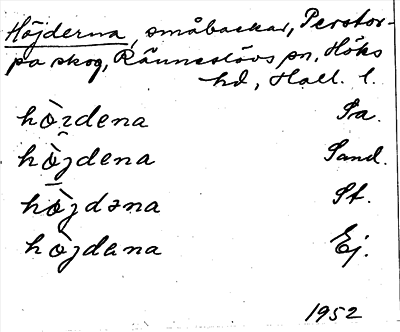 Höjderna, småbackar, Perstor-
pa skog, Ränneslövs sn, Höks
hd, Hall. l.
hòzdena Sa.
hòjdena Sand.
hòjdəna St.
hòjdana Ej.
1952